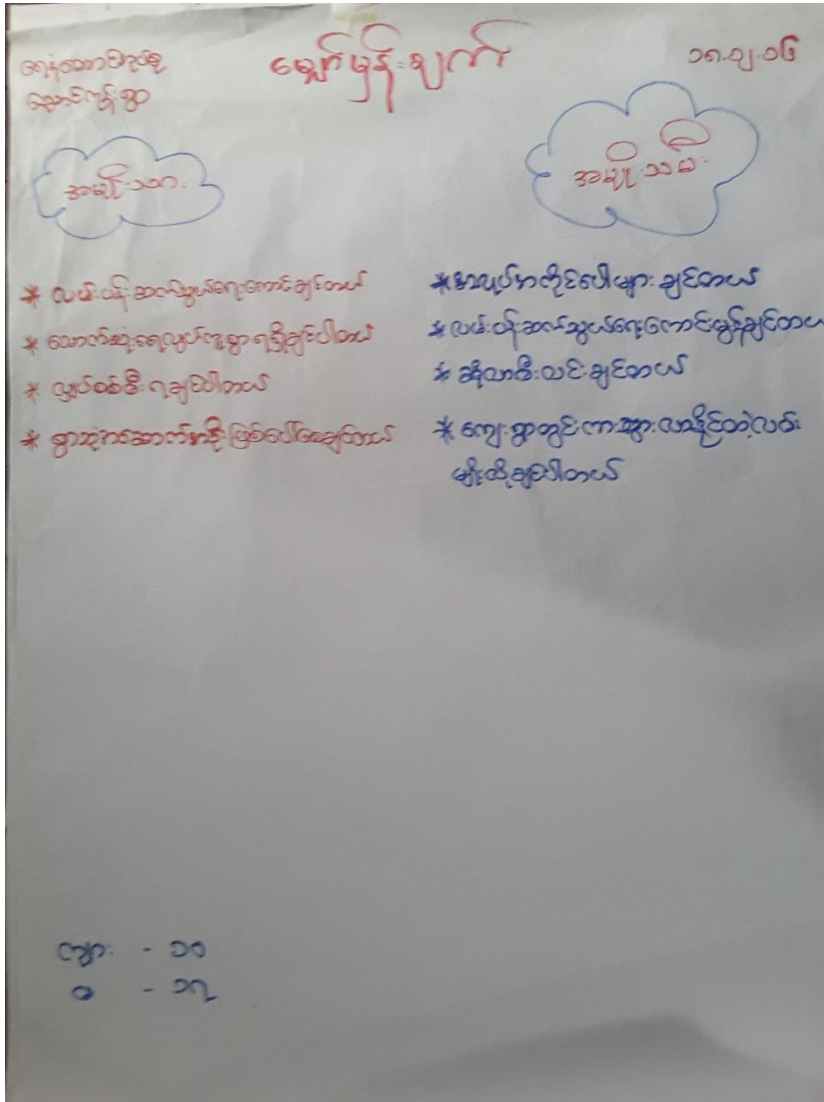 မျှော်မှန်းချက်
၁၈.၃.၁၆
ကျွန်းရွာ
အမျိုးသား
အမျိုးသမီး
* လမ်းပန်းဆက်သွယ်ရေးကောင်းချင်တယ်
* သောက်သုံးရေလှုပ်ကူးရွာရရှိချင်ပါတယ်
* လျှပ်စစ်မီး ရချင်ပါတယ်
* ရွာတွင်းဆောက်အဦးဖြစ်ပေါ်စေချင်တယ်
* အလုပ်အကိုင်ပေါများချင်တယ်
* လမ်းပန်းဆက်သွယ်ရေးကောင်းမွန်ချင်တယ်
* ဆိုလာမီးလင်းချင်တယ်
* ကျေးရွာတွင်းကားသွားလာနိုင်တဲ့လမ်း
မျိုးလိုချင်ပါတယ်
ကျား - ၁၀
မ - ၁၇